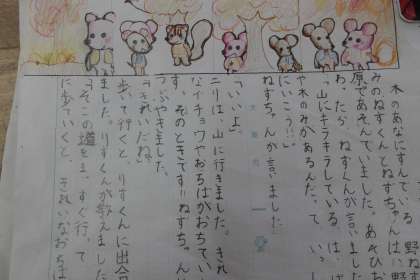 木のあなにすんでいる 野ね
みのねずくんとねずちゃんは、野
原であそんでいました。あそびお
わったら ねずくんが言いました
「山にキラキラしている は、ぱ
や木のみがあるんだって、い
にいこう!!」
ねずちゃんが言いました
「いいよ」
二りは、山に行きました。きれ
なイチョウやおちばがおちてい
す。そのときです!!ねずちゃん
つぶやきました。
「きれいだね」
歩いて行くと、りすくんに出会
ました。りすくんが教えました
「そこの道をまっすぐ行って
に歩ていくと、きれいなおちば